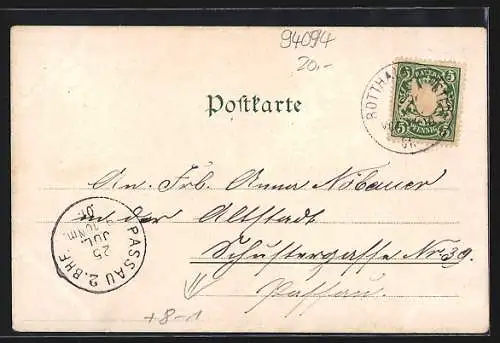 94094
20.-
Postkarte
ROTTHA
5 BAYERN 5
5 PFENNIG 5
An Frl. Anna Nöbauer
in der Altstadt
Schustergasse Nr. 39.
Passau.
PASSAU 2. BHF.
25
JUL.
+8-1